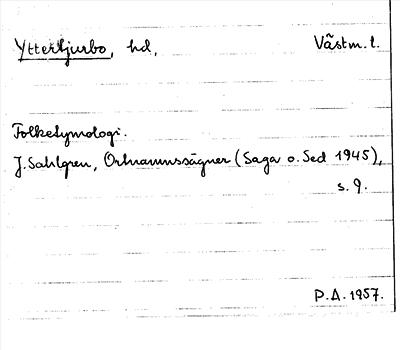 Yttertjurbo, hd, Västm. l.
Folketymologi.
J. Sahlgren, Ortnamnssägner (Saga o. Sed 1945),
s. 9.
P.A. 1957.